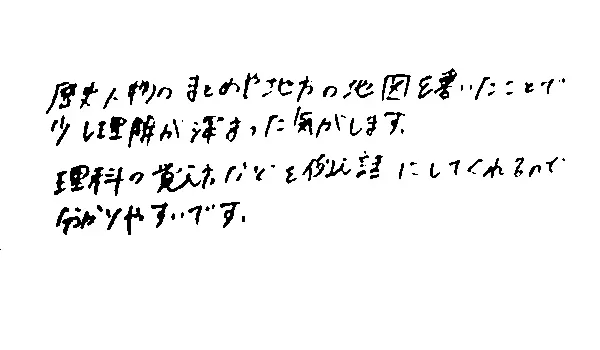 歴史人物のまとめや地方の地図を書いたことで
少し理解が深まった気がします。
理科の覚え方などを例え話にしてくれるので
分かりやすいです。